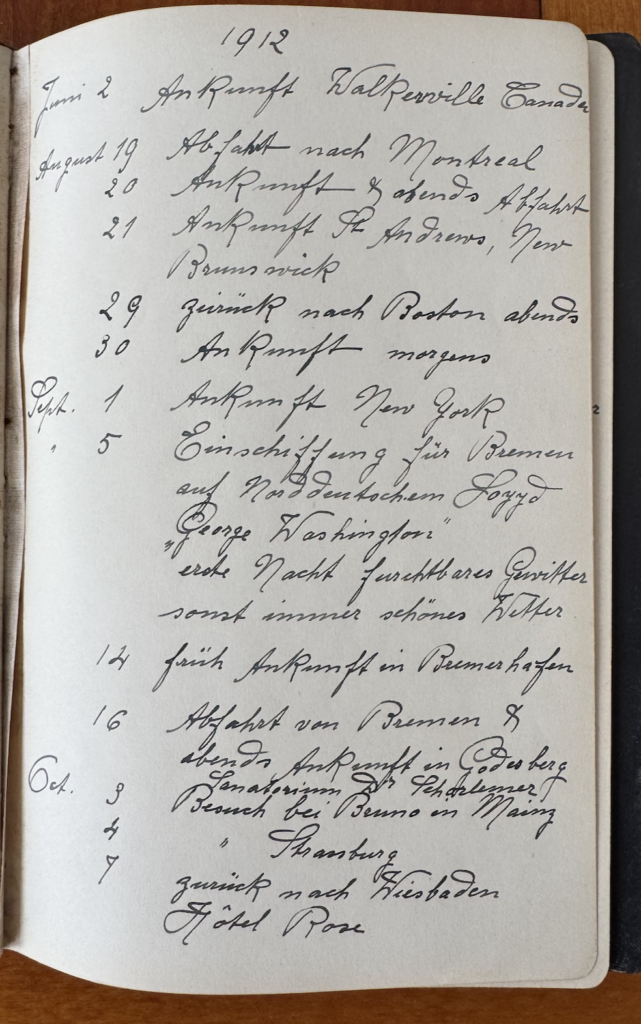 1912
Juni 2 Ankunft Walkerville Canada
August 19 Abfahrt nach Montreal
20 Ankunft & abends Abfahrt
21 Ankunft St Andrews, New
Brunswick
29 zurück nach Boston abends
30 Ankunft morgens
Sept. 1 Ankunft New York
" 5 Einschiffung für Bremen
auf Norddeutschem Loyyd
"George Washington"
erste Nacht furchtbares Gewitter
sonst immer schönes Wetter
14 früh Ankunft in Bremerhafen
16 Abfahrt von Bremen &
abends Ankunft in Godesberg
Sanatorium Dr Scharlemer
Oct. 3 Besuch bei Bruno in Mainz
4 " Strassburg
7 zurück nach Wiesbaden
Hôtel Rose